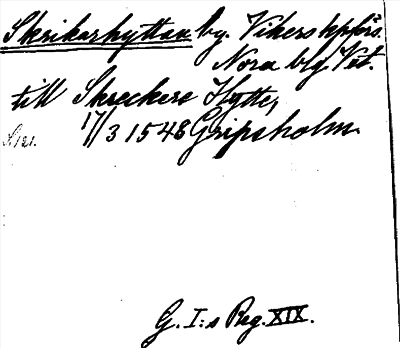 Skrikarhyttan by. Vikers kpförs.
Nora blg Vst.
till Skreckere Hytte,
17/3 1548 Gripsholm.
S. 121.
G. I:s Reg. XIX.